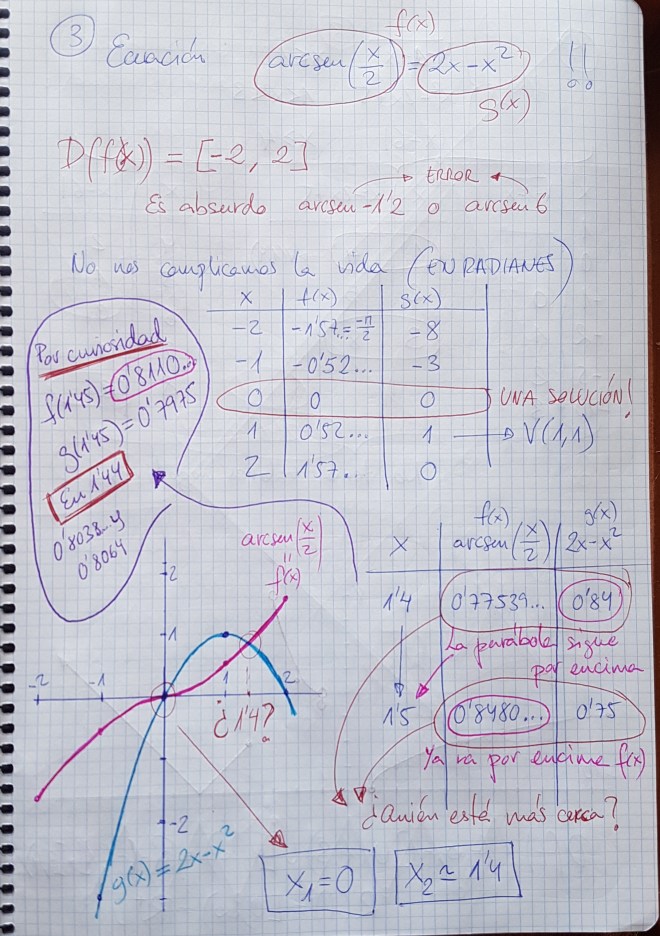 ③ Ecuación arcsen(x/2) = 2x-x² !!
f(x)
g(x)
D(f(x)) = [-2, 2]
→ ERROR ←
Es absurdo arcsen -1'2 o arcsen 6
No nos complicamos la vida (EN RADIANES)
x f(x) g(x)
-2 -1'57.. = -π/2 -8
-1 -0'52... -3
0 0 0 UNA SOLUCIÓN!
1 0'52... 1 → V(1,1)
2 1'57... 0
Por curiosidad
f(1'45) = 0'8110...
g(1'45) = 0'7975
En 1'44
0'8038.. y
0'8064
f(x) g(x)
x arcsen(x/2) 2x-x²
1'4 0'77539... 0'84
La parábola sigue
por encima
1'5 0'8480... 0'75
Ya va por encima f(x)
¿Quién está más cerca?
arcsen(x/2)
"
f(x)
2
1
-2 -1 1 2
¿1'4?
-2
g(x) = 2x-x²
x₁ = 0 x₂ ≃ 1'4